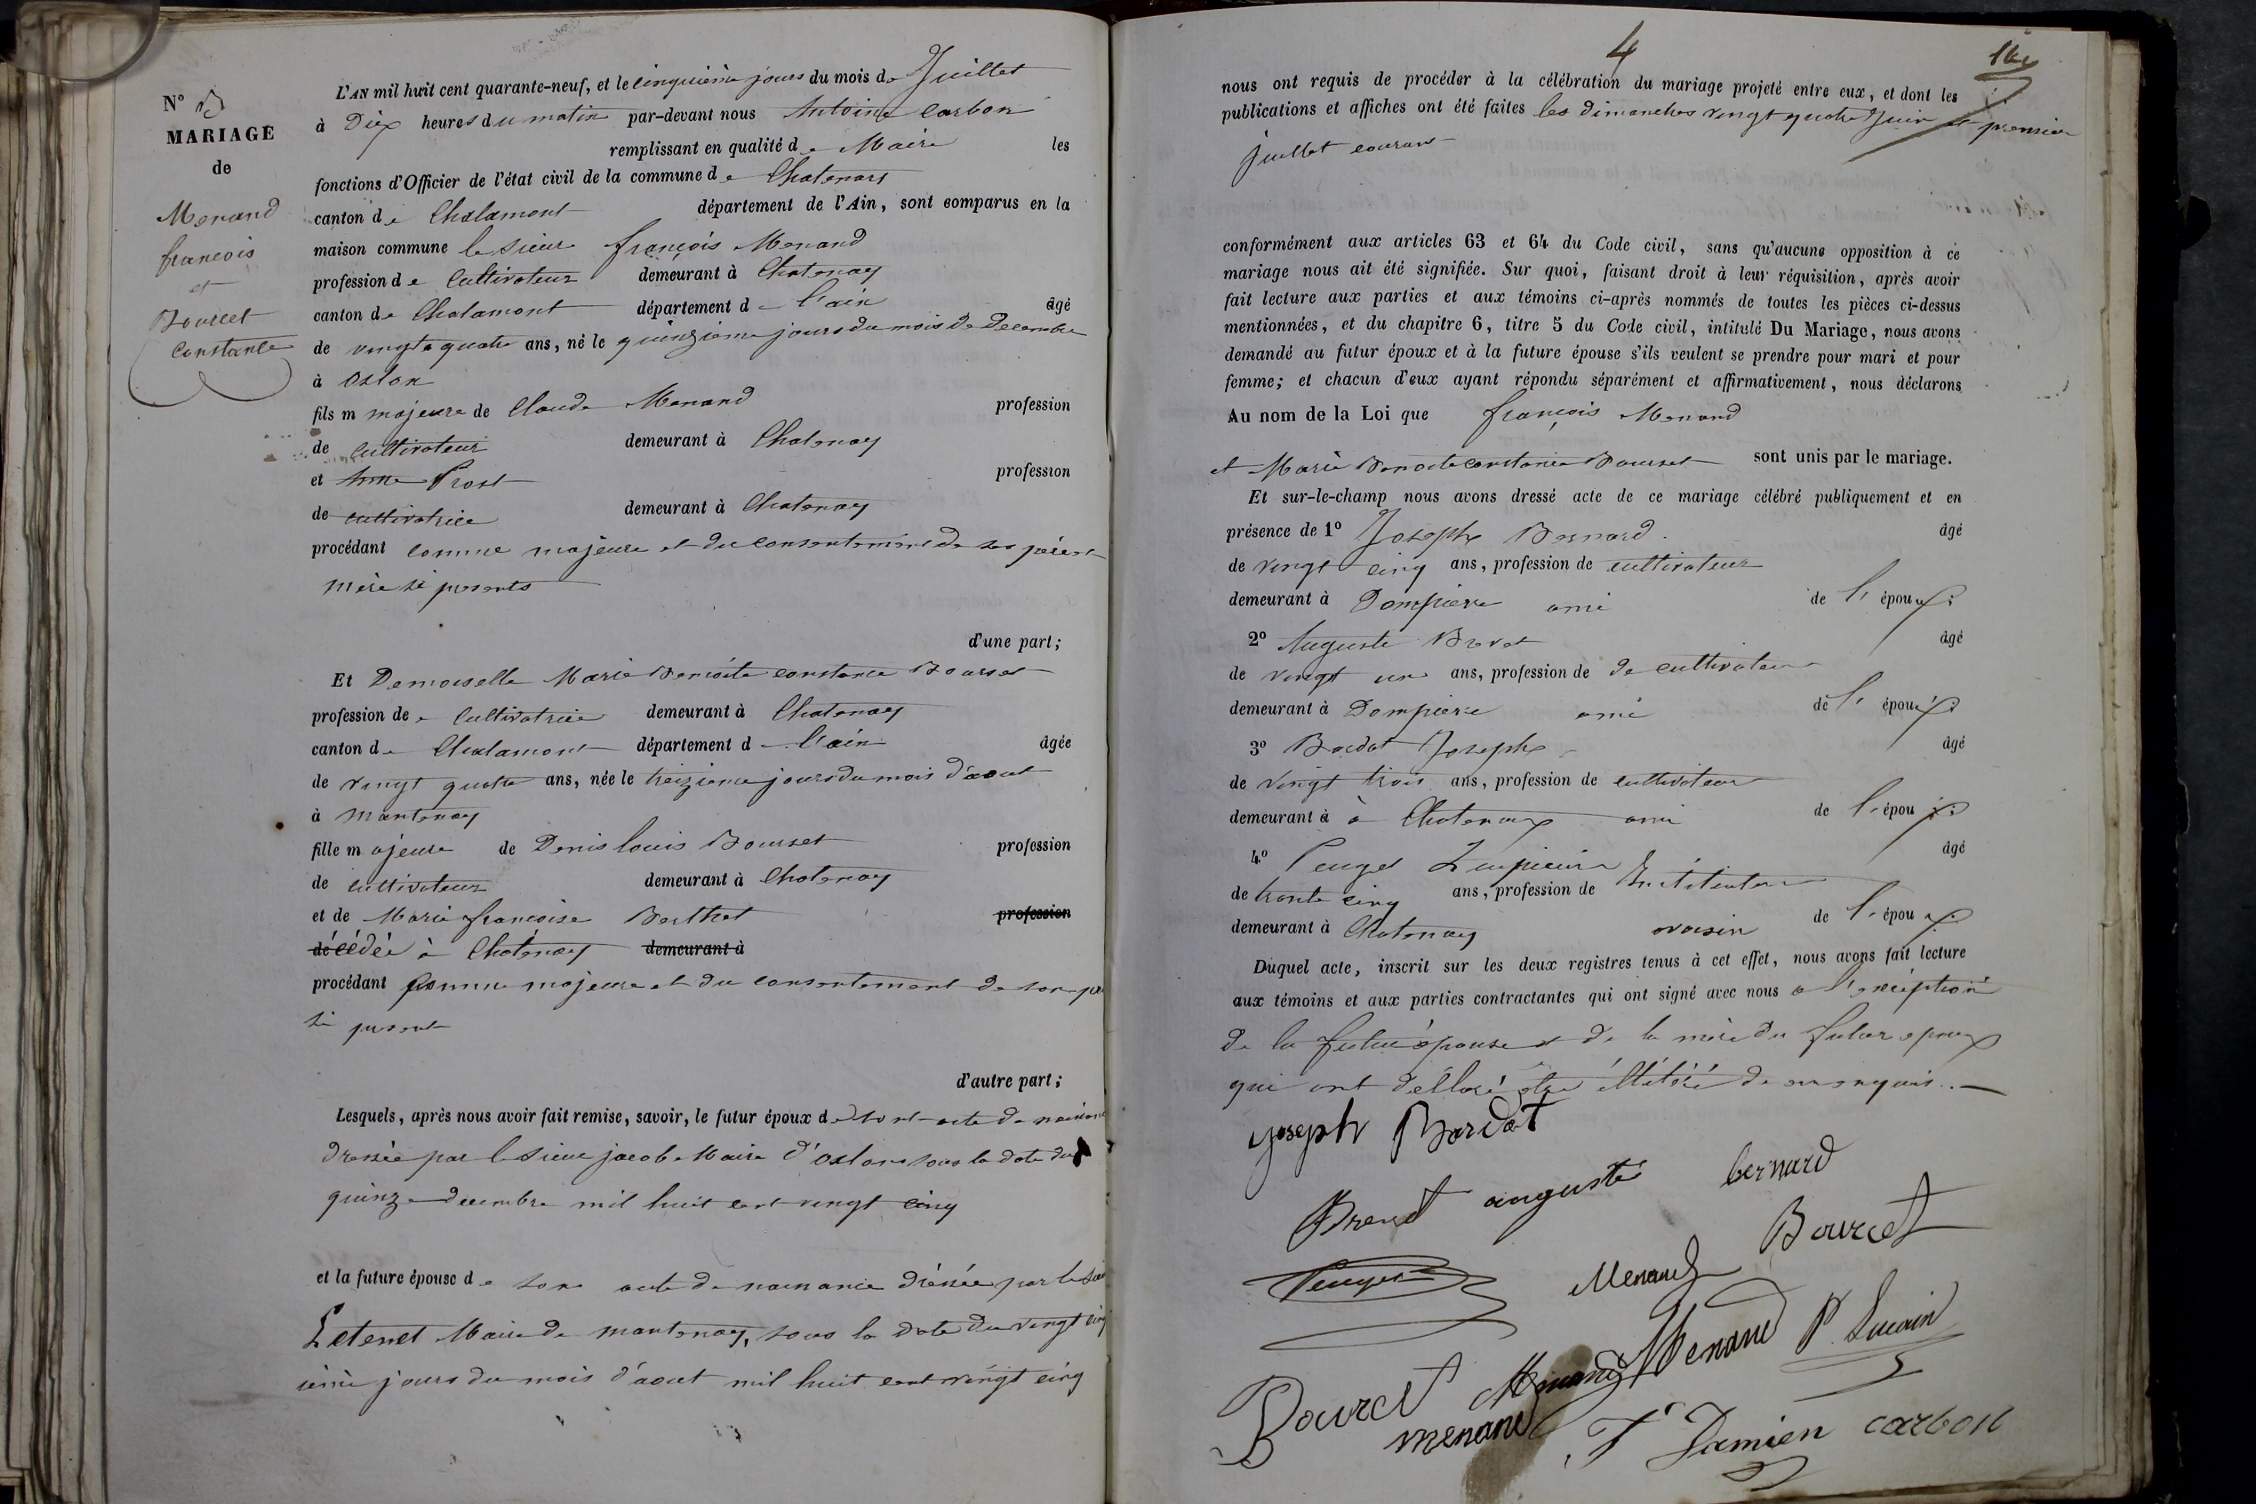 N° 3
MARIAGE
de
Menand
francois
et
Bourcet
Constance
L'AN mil huit cent quarante-neuf, et le cinquième jours du mois de Juillet
à Dix heures du matin par-devant nous Antoine Carbon
remplissant en qualité de Maire les
fonctions d'Officier de l'état civil de la commune de Chatenay
canton de Chalamont département de l'Ain, sont comparus en la
maison commune le sieur françois Menand
profession de Cultivateur demeurant à Chatenay
canton de Chalamont département de l'ain âgé
de vingt quatre ans, né le quinzieme jours du mois de decembre
à oslon
fils majeure de Claude Menand profession
de cultivateur demeurant à Chatenay
et Anne Prost profession
de cultivatrice demeurant à Chatenay
procédant comme majeure et du consentement de ses père et
mère si presents
d'une part;
Et Demoiselle Marie Benoite constance Bourset
profession de Cultivatrice demeurant à Chatenay
canton de Chalamont département de l'ain âgée
de vingt quatre ans, née le treizieme jours du mois d'aout
à Mantenay
fille majeure de Denis louis Bourset profession
de cultivateur demeurant à Chatenay
et de Marie françoise Berthet profession
décédée à Chatenay demeurant à
procédant comme majeure et du consentement de son
si present
d'autre part;
Lesquels, après nous avoir fait remise, savoir, le futur époux de son acte de
dressée par le sieur jacob Maire d'oslon sous la date du
quinze decembre mil huit cent vingt cinq
et la future épouse de son acte de naissance dréssée par le
Letenet Maire de mantenay, sous la date du vingt
ième jours du mois d'aout mil huit cent vingt cinq
4
nous ont requis de procéder à la célébration du mariage projeté entre eux, et dont les
publications et affiches ont été faites les dimanches vingt quatre Juin et premier
juillet courant
conformément aux articles 63 et 64 du Code civil, sans qu'aucune opposition à ce
mariage nous ait été signifiée. Sur quoi, faisant droit à leur réquisition, après avoir
fait lecture aux parties et aux témoins ci-après nommés de toutes les pièces ci-dessus
mentionnées, et du chapitre 6, titre 5 du Code civil, intitulé Du Mariage, nous avons
demandé au futur époux et à la future épouse s'ils veulent se prendre pour mari et pour
femme; et chacun d'eux ayant répondu séparément et affirmativement, nous déclarons
Au nom de la Loi que françois Menand
et Marie Benoite constance Bourset sont unis par le mariage.
Et sur-le-champ nous avons dressé acte de ce mariage célébré publiquement et en
présence de 1° Joseph Bernard. âgé
de vingt cinq ans, profession de cultivateur
demeurant à Dompierre ami de l'époux.
2° Auguste Brevet âgé
de vingt un ans, profession de de cultivateur
demeurant à Dompierre ami de l'époux.
3° Bardot Joseph âgé
de vingt trois ans, profession de cultivateur
demeurant à à Chatenay ami de l'époux.
4° Peuget âgé
de trente cinq ans, profession de Instituteur
demeurant à Chatenay voisin de l'époux.
Duquel acte, inscrit sur les deux registres tenus à cet effet, nous avons fait lecture
aux témoins et aux parties contractantes qui ont signé avec nous a l'exception
de la future épouse et de la mère du futur epoux
qui ont déllaré etre illitéré de ce requis.
joseph Bardot
Brevet auguste bernard
Bourcet
Peuget Menand
Menand Menand P. Lucain
Bourcet menand
Damien carbon